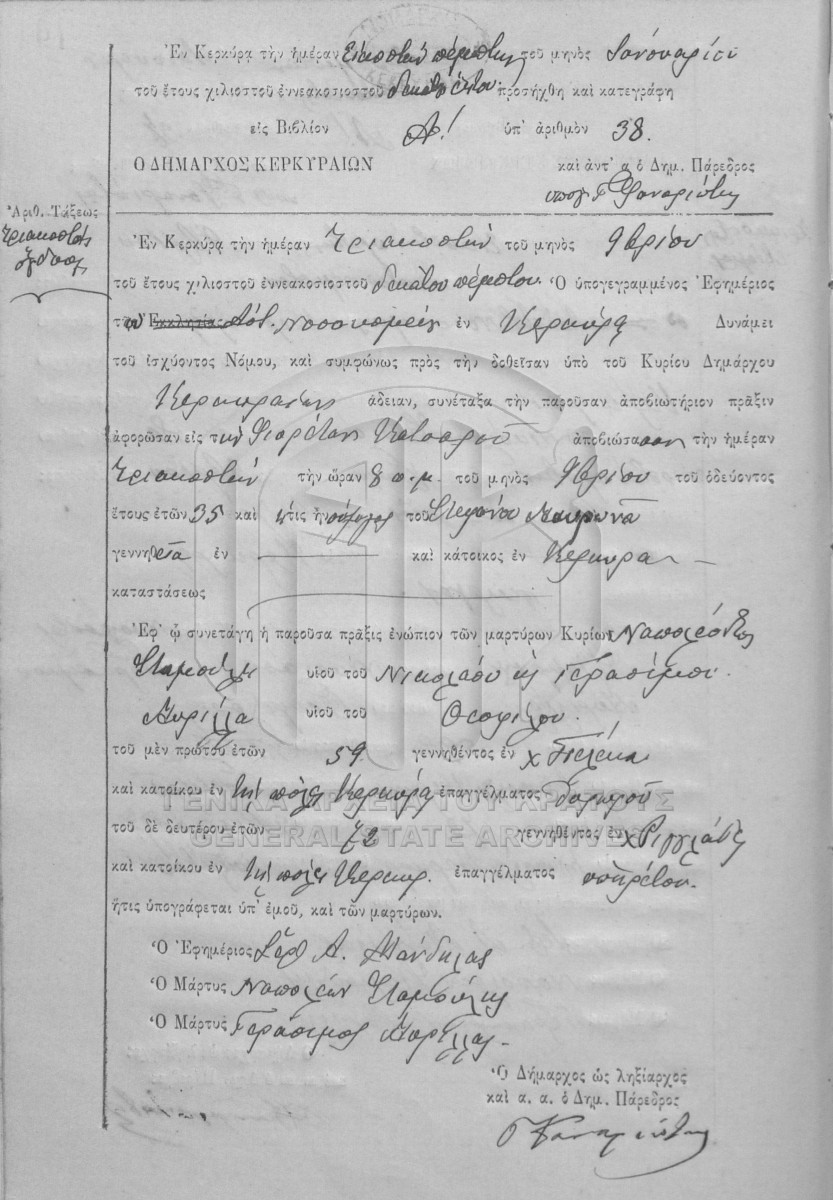 Ἐν Κερκύρᾳ τὴν ἡμέραν Εἰκοστὴν πέμπτην τοῦ μηνὸς Ἰανουαρίου
τοῦ ἔτους χιλιοστοῦ ἐννεακοσιοστοῦ δεκάτου ἕκτου προσήχθη καὶ κατεγράφη
εἰς Βιβλίον Α! ὑπ' ἀριθμὸν 38.
Ο ΔΗΜΑΡΧΟΣ ΚΕΡΚΥΡΑΙΩΝ καὶ ἀντ' α ὁ Δημ. Πάρεδρος
υπογ Γ
Ἀριθ. Τάξεως
τριακοστὸς
ὄγδοος
Ἐν Κερκύρᾳ τὴν ἡμέραν τριακοστὴν τοῦ μηνὸς 9βρίου
τοῦ ἔτους χιλιοστοῦ ἐννεακοσιοστοῦ δεκάτου πέμπτου. Ὁ ὑπογεγραμμένος Ἐφημέριος
τοῦ Ἐκκλησίας Νοσοκομείου ἐν Κερκύρᾳ Δυνάμει
τοῦ ἰσχύοντος Νόμου, καὶ συμφώνως πρὸς τὴν δοθεῖσαν ὑπὸ τοῦ Κυρίου Δημάρχου
Κερκυραίων ἄδειαν, συνέταξα τὴν παροῦσαν ἀποβιωτήριον πρᾶξιν
ἀφορῶσαν εἰς τὴν Φιορέταν Κατσαροῦ ἀποβιώσασαν τὴν ἡμέραν
τριακοστὴν τὴν ὥραν 8 π.μ. τοῦ μηνὸς 9βρίου τοῦ ὁδεύοντος
ἔτους ἐτῶν 35 καὶ ἥτις ἦν σύζυγος τοῦ Στεφάνου Μαρωνᾶ
γεννηθεῖσα ἐν καὶ κάτοικος ἐν Κέρκυρα
καταστάσεως
Ἐφ' ᾧ συνετάγη ἡ παροῦσα πρᾶξις ἐνώπιον τῶν μαρτύρων Κυρίων Ναπολέοντος
Σταμούλη υἱοῦ τοῦ Νικολάου κ Γερασίμου
Κυρίλλα υἱοῦ τοῦ Θεοφίλου.
τοῦ μὲν πρώτου ἐτῶν 59 γεννηθέντος ἐν χ Πέλεκα
καὶ κατοίκου ἐν τῇ πόλει Κερκύρᾳ ἐπαγγέλματος
ΓΕΝΙΚΑ ΑΡΧΕΙΑ ΤΟΥ ΚΡΑΤΟΥΣ
τοῦ δὲ δευτέρου ἐτῶν 72 γεννηθέντος ἐν χ Ριγγλάδες
GENERAL STATE ARCHIVES
καὶ κατοίκου ἐν τῇ πόλει Κερκυρ. ἐπαγγέλματος ὑπηρέτου.
ἥτις ὑπογράφεται ὑπ' ἐμοῦ, καὶ τῶν μαρτύρων.
Ὁ Ἐφημέριος Α. Μάνδηλας
Ὁ Μάρτυς Ναπολέων Σταμούλης
Ὁ Μάρτυς Γεράσιμος Κυρίλλας
Ὁ Δήμαρχος ὡς ληξίαρχος
καὶ α. α. ὁ Δημ. Πάρεδρος